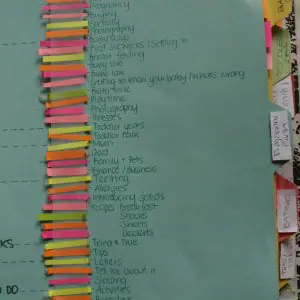 Pregnancy
Buying
Birthing
Photography
First six weeks / Settling in
Breast feeding
Baby love
Baby talk
Getting to know your baby / what's wrong
Bath time
Playtime
Photography
Illnesses
Toddler years
Toddler talk
Mum
Dad
Family + Pets
Finance / Business
Teething
Allergies
Introducing solids
Recipes Breakfast
Snacks
Sweets
Desserts
KS
Tried & true
Tips
Letters
Tell me about it
Sleeping
DO
Activities
EATING